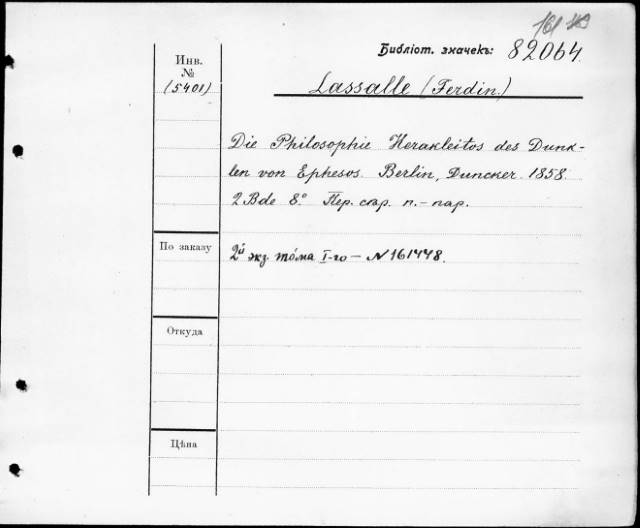 Библіот. значекъ: 82064.
Инв.
№
(5401)
Lassalle (Ferdin.)
Die Philosophie Herakleitos des Dunk-
len von Ephesos. Berlin, Duncker. 1858.
2 Bde 8º. Пер. стар. п.-пар.
По заказу
2й экз. тома I-го — N 161448.
Откуда
Цѣна